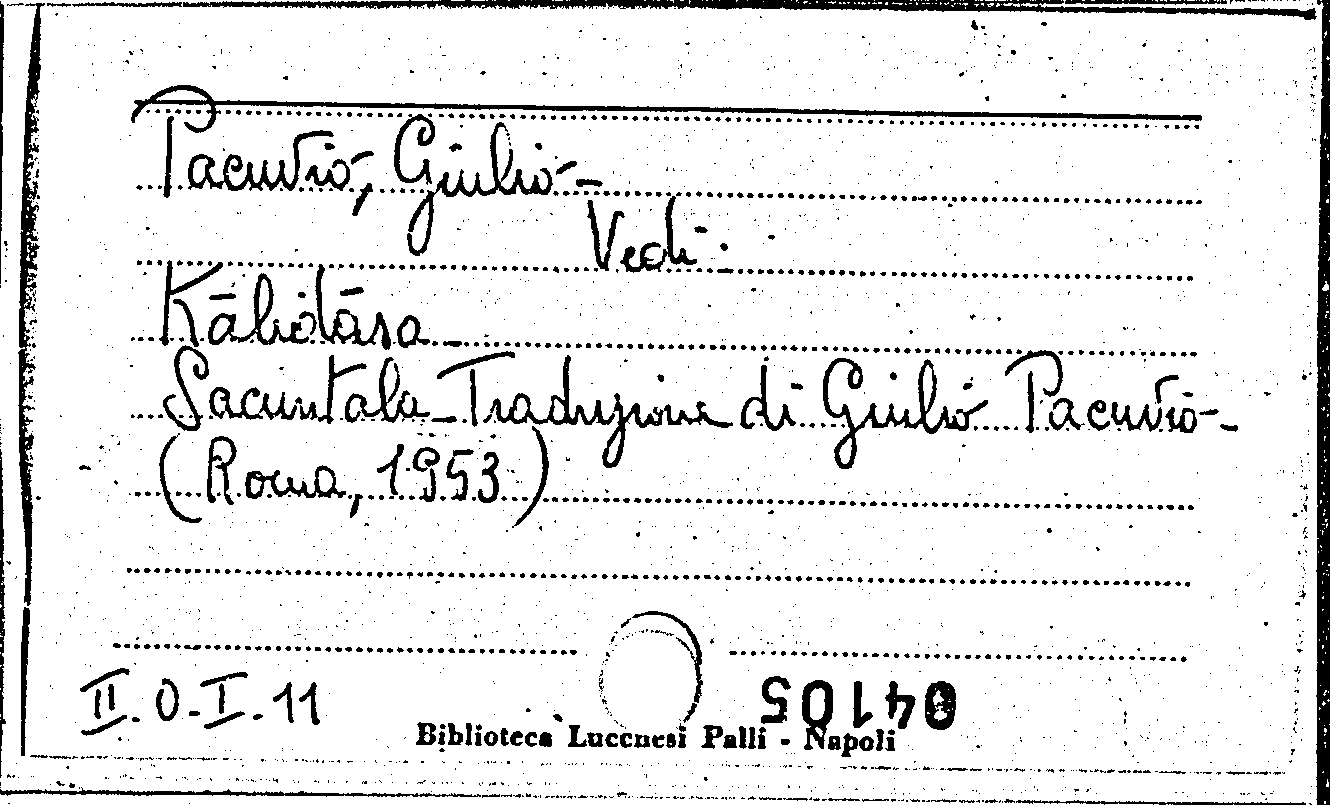 Pacuvio, Giulio -
Vedi:
Kālidāsa -
Sacuntala - Traduzione di Giulio Pacuvio -
(Roma, 1953)
II. O. I. 11
04105
Biblioteca Lucchesi Palli - Napoli